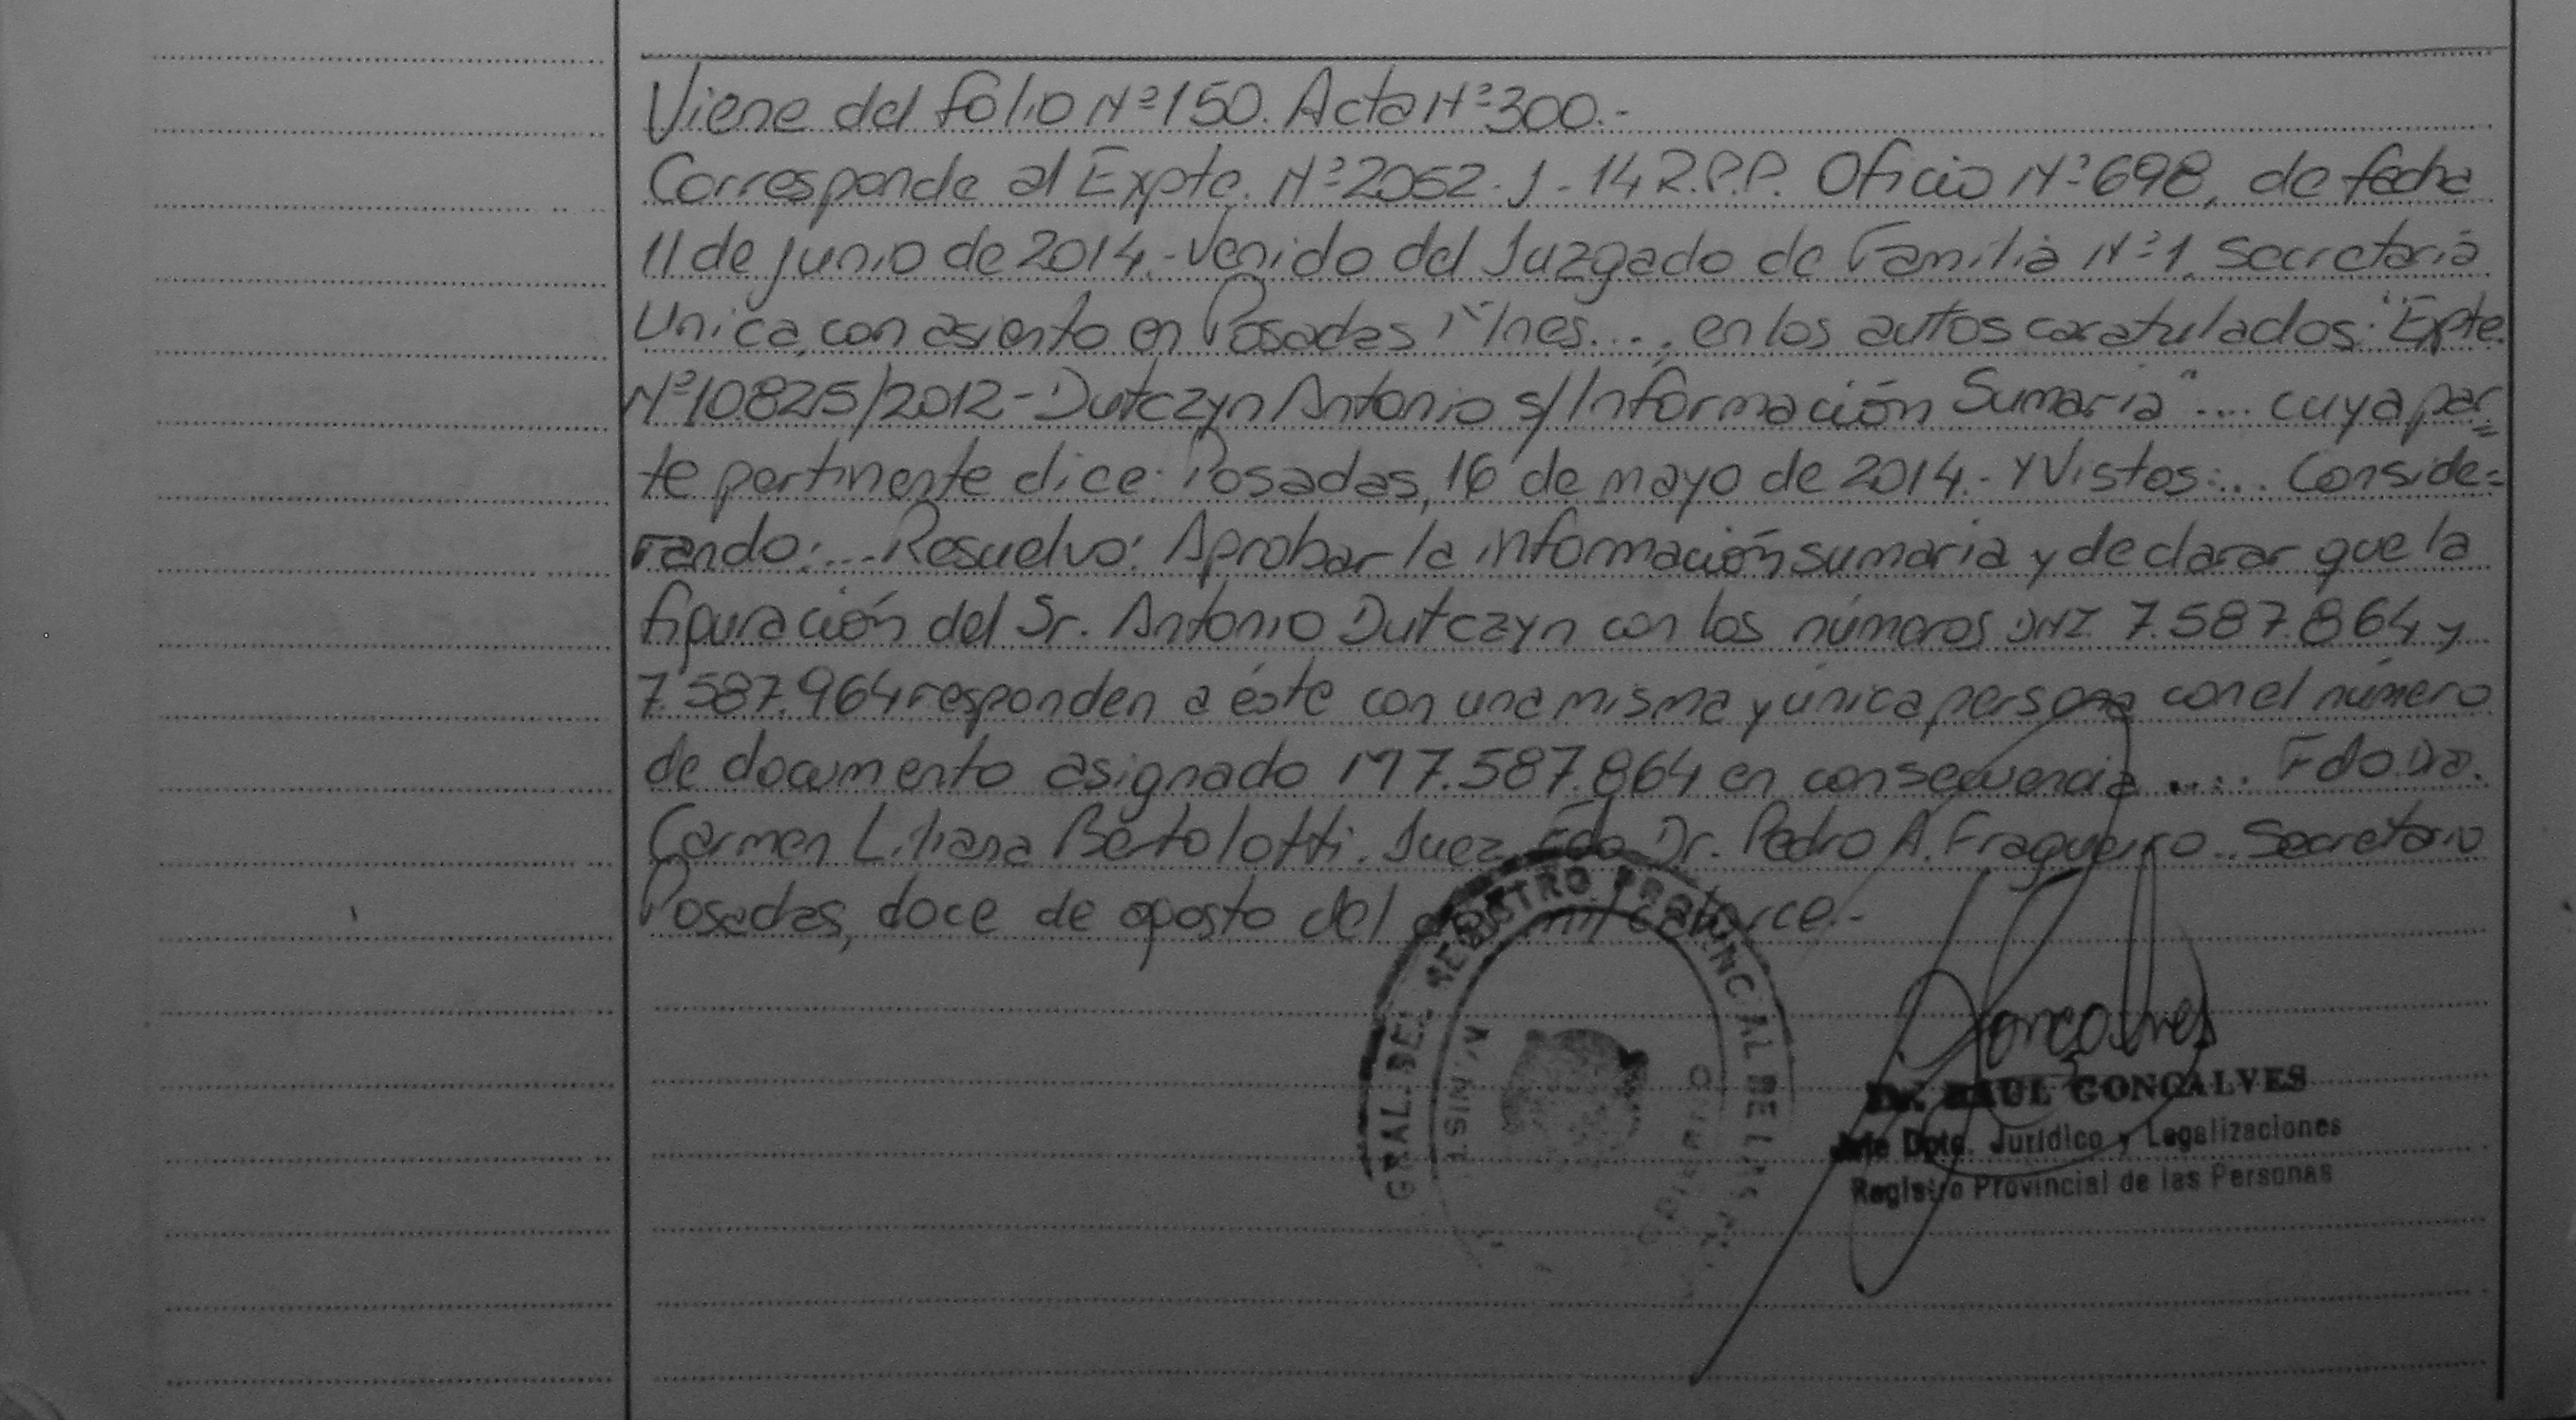 Viene del folio Nº150. Acta Nº300.-
Corresponde al Expte. Nº2052-J-14 R.P.P. Oficio Nº698, de fecha
11 de junio de 2014.-Venido del Juzgado de Familia Nº1, Secretaría
Unica, con asiento en Posadas Mnes...., en los autos caratulados: "Expte.
Nº10825/2012-Dutczyn Antonio s/Información Sumaria".... cuya par=
te pertinente dice: Posadas, 16 de mayo de 2014.- Y Vistos:... Conside=
rando:... Resuelvo: Aprobar la información sumaria y declarar que la
figuración del Sr. Antonio Dutczyn con los números DNI 7.587.864 y
7.587.964 responden a éste con una misma y única persona con el número
de documento asignado M7.587.864 en consecuencia .... Fdo. Dra.
Carmen Liliana Bertolotti. Juez. Fdo Dr. Pedro A. Fragueiro. Secretario
Posadas, doce de agosto del dos mil catorce.-
GRAL. DEL REGISTRO PROVINCIAL DE LAS
Goncalves
Dr. RAUL GONCALVES
Jefe Dpto. Jurídico y Legalizaciones
Registro Provincial de las Personas